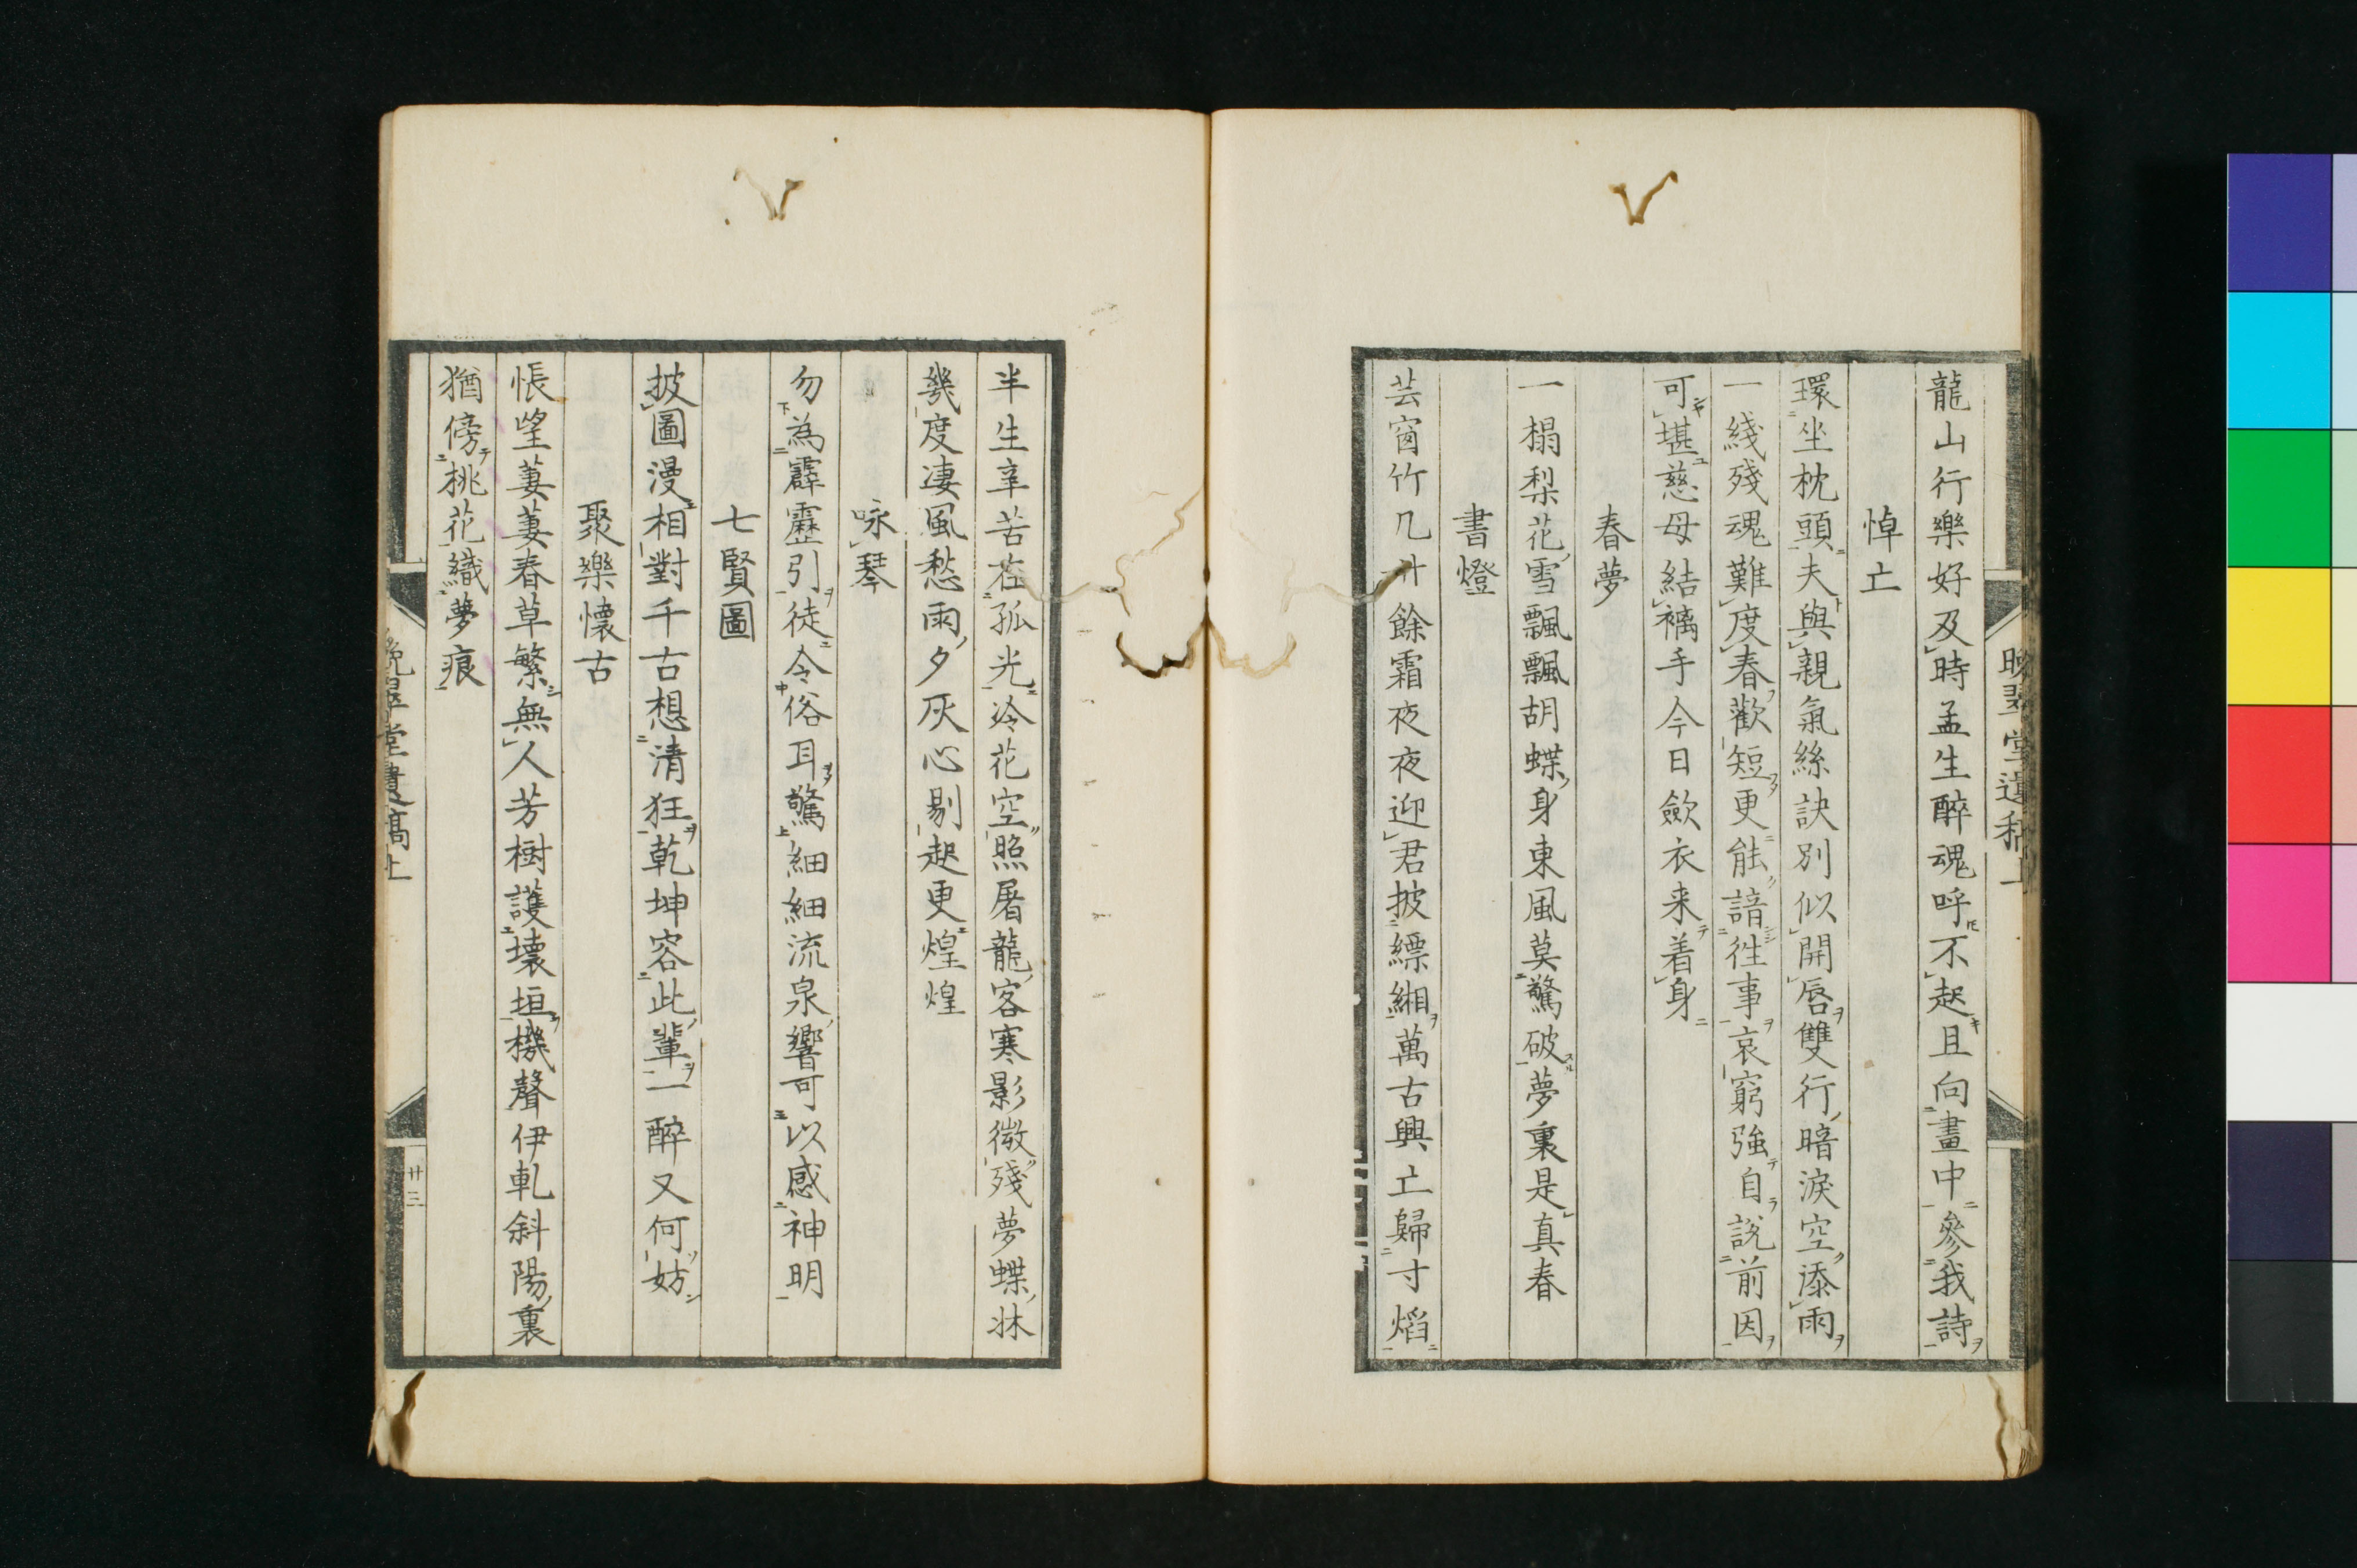 龍山行樂好及時孟生醉魂呼不起且向畫中參我詩
悼亡
環坐枕頭夫與親氣絲訣別似開唇雙行暗淚空添雨
一綫殘魂難度春歡短更能諳往事哀窮強自說前因
可堪慈母結褵手今日斂衣来着身
春夢
一榻梨花雪飄飄胡蝶身東風莫驚破夢裏是真春
書燈
芸窗竹几廾餘霜夜夜迎君披縹緗萬古興亡歸寸焰
晚翠堂遺稿上
半生辛苦在孤光冷花空照屠龍客寒影微殘夢蝶牀
幾度凄風愁雨夕灰心剔起更煌煌
咏琴
勿為霹靂引徒令俗耳驚細細流泉響可以感神明
七賢圖
披圖漫相對千古想清狂乾坤容此輩一醉又何妨
聚樂懷古
悵望萋萋春草繁無人芳樹護壊垣機聲伊軋斜陽裏
猶傍桃花織夢痕
晚翠堂遺稿上
廿二